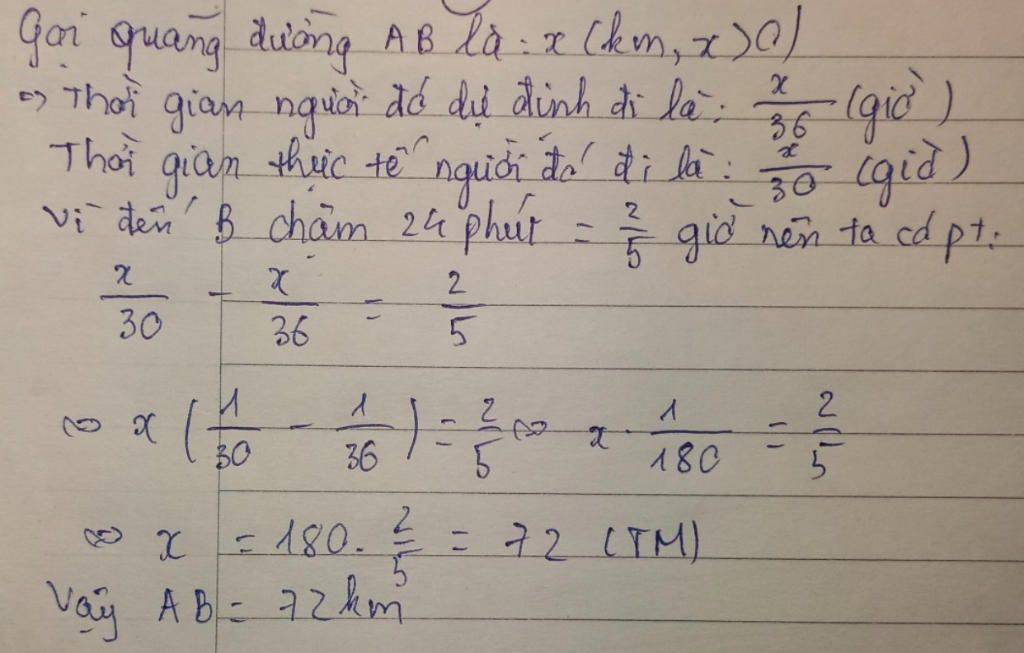 Gọi quãng đường AB là: x (km, x>0)
=> Thời gian người đó dự định đi là: x/36 (giờ)
Thời gian thực tế người đó đi là: x/30 (giờ)
Vì đến B chậm 24 phút = 2/5 giờ nên ta có pt:
x/30 - x/36 = 2/5
⇔ x (1/30 - 1/36) = 2/5 ⇔ x . 1/180 = 2/5
⇔ x = 180. 2/5 = 72 (TM)
Vậy AB = 72km